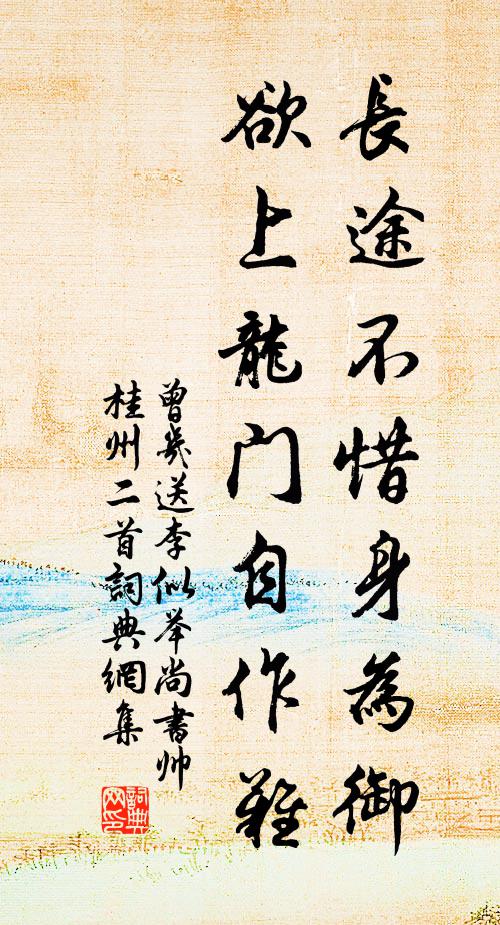 長途不惜身為御
欲上龍门自作難
曾幾送李似举尚書帅
桂州二首詞典網集
詞典网印